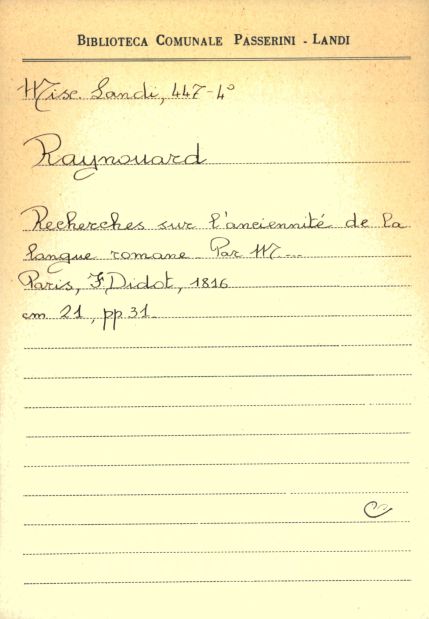 BIBLIOTECA COMUNALE PASSERINI - LANDI
Misc. Landi, 447-4°
Raynouard
Recherches sur l'ancienneté de la
langue romane. Par M....
Paris, F. Didot, 1816
cm 21, pp 31.
C